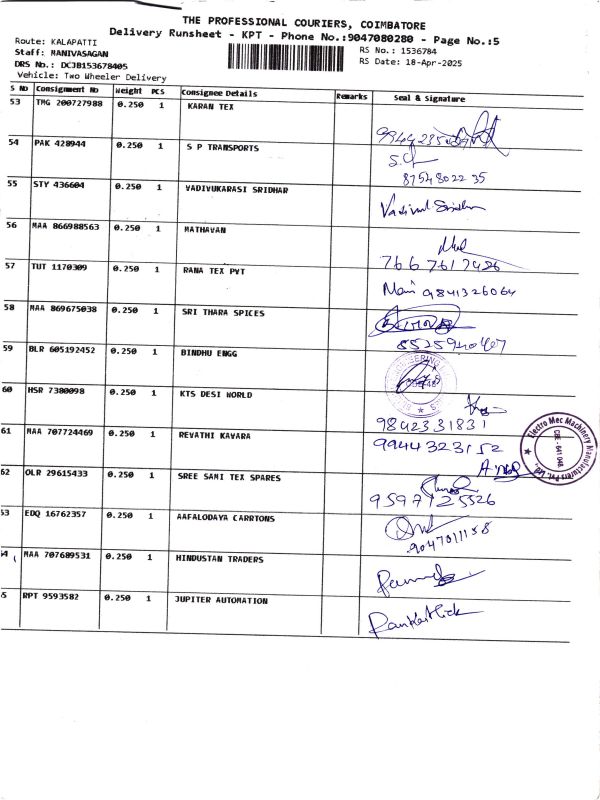 THE PROFESSIONAL COURIERS, COIMBATORE
Delivery Runsheet - KPT - Phone No.:9047080280 - Page No.:5
Route: KALAPATTI
Staff: MANIVASAGAN
DRS No.: DCJB153678405
Vehicle: Two Wheeler Delivery
RS No.: 1536784
RS Date: 18-Apr-2025
S No Consignment No Weight PCS Consignee Details Remarks Seal & Signature
53 TMG 200727988 0.250 1 KARAN TEX
54 PAK 428944 0.250 1 S P TRANSPORTS
8754802235
55 STY 436604 0.250 1 VADIVUKARASI SRIDHAR
56 MAA 866988563 0.250 1 MATHAVAN
7667617486
57 TUT 1170309 0.250 1 RANA TEX PVT
Mani 9841326064
58 MAA 869675038 0.250 1 SRI THARA SPICES
59 BLR 605192452 0.250 1 BINDHU ENGG
60 HSR 7380098 0.250 1 KTS DESI WORLD
9842331831
61 MAA 707724469 0.250 1 REVATHI KAVARA
9944323152
Electro Mec Machinery Manufacturers Pvt. Ltd.
CBE - 641 048.
62 OLR 29615433 0.250 1 SREE SAMI TEX SPARES
9597125526
53 EDQ 16762357 0.250 1 AAFALODAYA CARRTONS
9047011158
54 MAA 707689531 0.250 1 HINDUSTAN TRADERS
5 RPT 9593582 0.250 1 JUPITER AUTOMATION